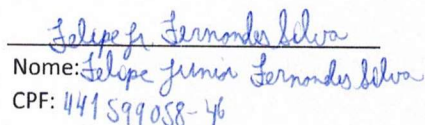 Felipe Jr Fernandes Silva
Nome: Felipe Junior Fernandes Silva
CPF: 441599058-46